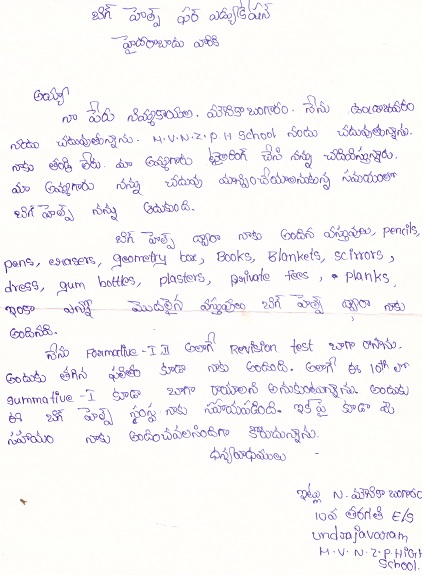 బిగ్ హెల్ప్ ఫర్ ఎడ్యుకేషన్
హైదరాబాదు వారికి
అయ్యా
నా పేరు నిమ్మకాయల. మౌనికా బంగారం. నేను ఉండ్రాజవరం
నందు చదువుతున్నాను. M.V.N.Z.P.H School నందు చదువుతున్నాను.
నాకు తండ్రి లేరు. మా అమ్మగారు టైలరింగ్ చేసి నన్ను చదివిస్తున్నారు.
మా అమ్మగారు నన్ను చదువు మాన్పించేయాలనుకున్న సమయంలో
బిగ్ హెల్ప్ నన్ను ఆదుకుంది.
బిగ్ హెల్ప్ ద్వారా నాకు అందిన వస్తువులు, pencils,
pens, erasers, geometry box, Books, Blankets, scirrors,
dress, gum bottles, plasters, private fees, planks,
ఇంకా ఎన్నో మొదలైన వస్తువులు బిగ్ హెల్ప్ ద్వారా నాకు
అందినవి.
నేను Formative-I II అలాగే Revision test బాగా రాసాను.
అందుకు తగిన ఫలితం కూడా నాకు అందింది. అలాగే ఈ 10th లో
summative-I కూడా బాగా రాయాలని అనుకుంటున్నాను. అందుకు
ఈ బిగ్ హెల్ప్ సంస్థ నాకు సహాయపడింది. ఇక పై కూడా
సహాయం నాకు అందించవలసిందిగా కోరుచున్నాను.
ధన్యవాదములు
ఇట్లు N. మౌనికా బంగారం
10వ తరగతి E/S
undrajavaram
M.V.N.Z.P.HIGH
School.